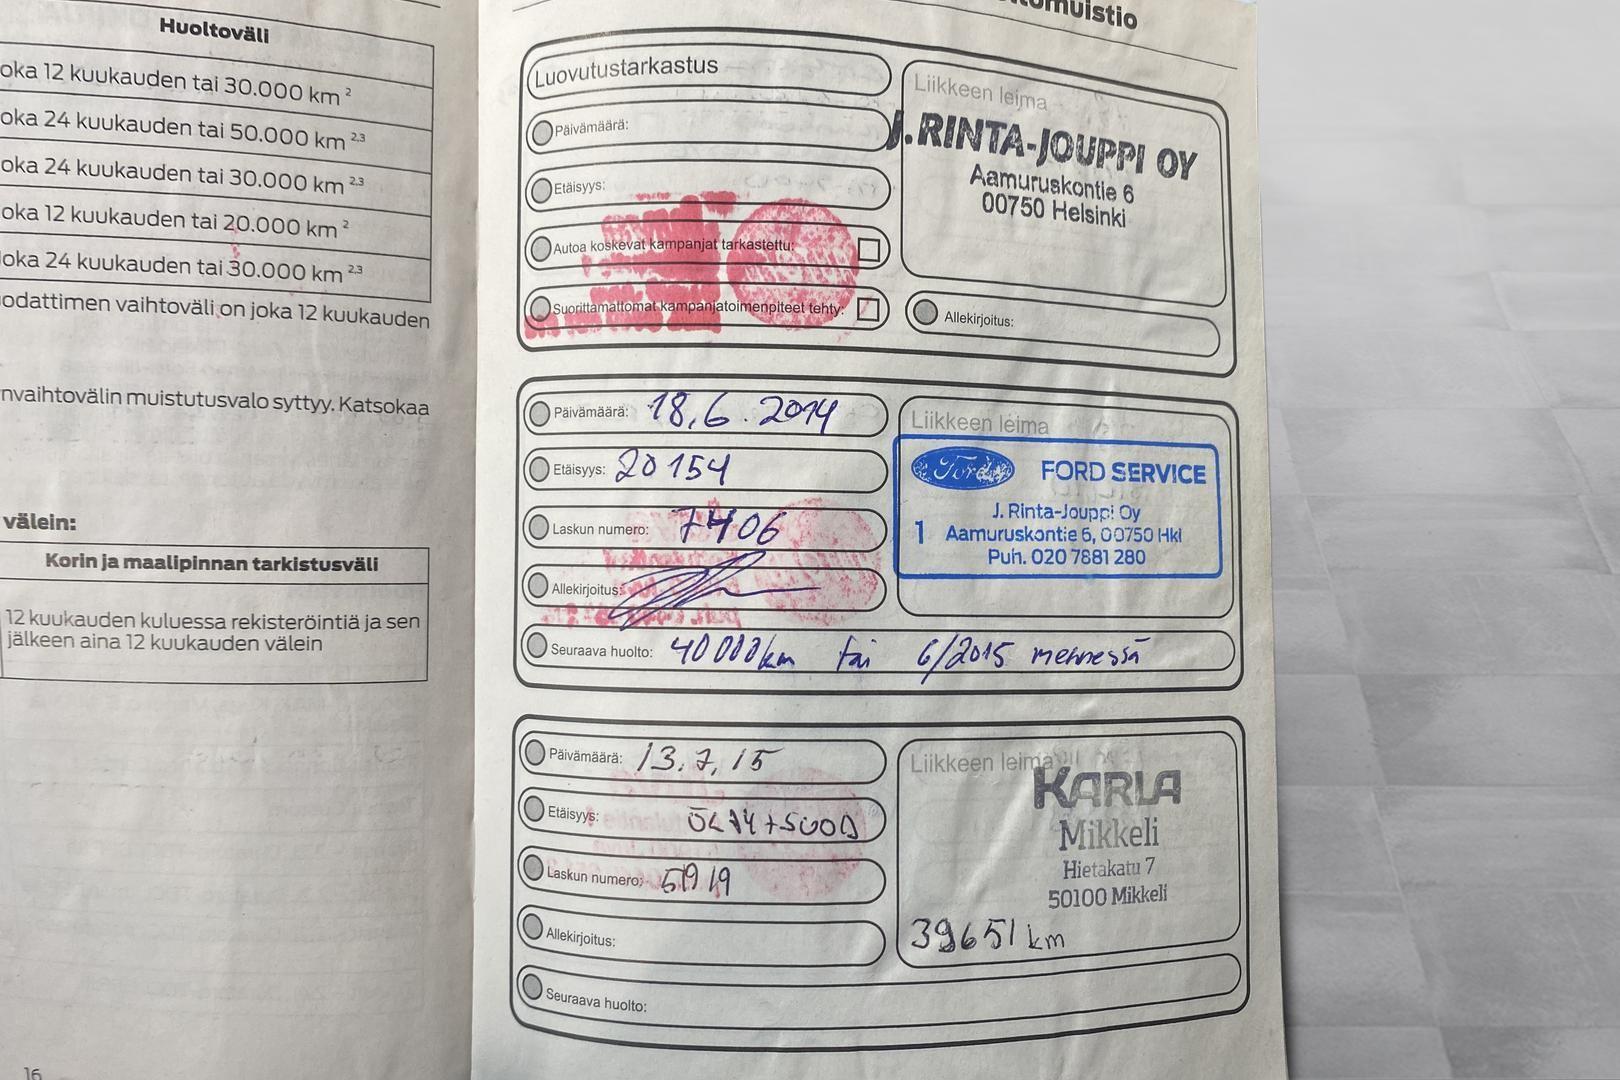 Huoltoväli
oka 12 kuukauden tai 30.000 km ²
oka 24 kuukauden tai 50.000 km ²,³
oka 24 kuukauden tai 30.000 km ²,³
oka 12 kuukauden tai 20.000 km ²
oka 24 kuukauden tai 30.000 km ²,³
odattimen vaihtoväli on joka 12 kuukauden
nvaihtovälin muistutusvalo syttyy. Katsokaa
välein:
Korin ja maalipinnan tarkistusväli
12 kuukauden kuluessa rekisteröintiä ja sen
jälkeen aina 12 kuukauden välein
16
tomuistio
Luovutustarkastus
Päivämäärä:
Etäisyys:
Autoa koskevat kampanjat tarkastettu:
Suorittamattomat kampanjatoimenpiteet tehty:
Liikkeen leima
J.RINTA-JOUPPI OY
Aamuruskontie 6
00750 Helsinki
Allekirjoitus:
Päivämäärä: 18.6.2014
Etäisyys: 20154
Laskun numero: 7406
Allekirjoitus:
Liikkeen leima
Ford FORD SERVICE
J. Rinta-Jouppi Oy
1 Aamuruskontie 6, 00750 Hki
Puh. 020 7881 280
Seuraava huolto: 40 000 km tai 6/2015 mennessä
Päivämäärä: 13.7.15
Etäisyys:
Laskun numero: 51919
Allekirjoitus:
Liikkeen leima
KARLA
Mikkeli
Hietakatu 7
50100 Mikkeli
39651 km
Seuraava huolto: